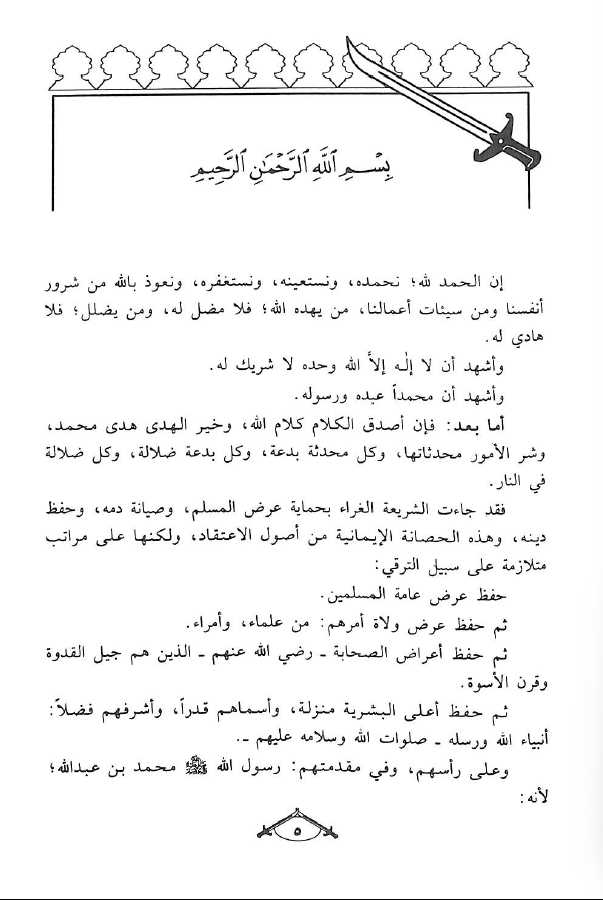 بِسْمِ اللَّهِ الرَّحْمَٰنِ الرَّحِيمِ
إن الحمد لله؛ نحمده، ونستعينه، ونستغفره، ونعوذ بالله من شرور
أنفسنا ومن سيئات أعمالنا، من يهده الله؛ فلا مضل له، ومن يضلل؛ فلا
هادي له.
وأشهد أن لا إلٰه إلاَّ الله وحده لا شريك له.
وأشهد أن محمداً عبده ورسوله.
أما بعد: فإن أصدق الكلام كلام الله، وخير الهدى هدى محمد،
وشر الأمور محدثاتها، وكل محدثة بدعة، وكل بدعة ضلالة، وكل ضلالة
في النار.
فقد جاءت الشريعة الغراء بحماية عرض المسلم، وصيانة دمه، وحفظ
دينه، وهذه الحصانة الإيمانية من أصول الاعتقاد، ولكنها على مراتب
متلازمة على سبيل الترقي:
حفظ عرض عامة المسلمين.
ثم حفظ عرض ولاة أمرهم: من علماء، وأمراء.
ثم حفظ أعراض الصحابة ـ رضي الله عنهم ـ الذين هم جيل القدوة
وقرن الأسوة.
ثم حفظ أعلى البشرية منزلة، وأسماهم قدراً، وأشرفهم فضلاً:
أنبياء الله ورسله ـ صلوات الله وسلامه عليهم ـ.
وعلى رأسهم، وفي مقدمتهم: رسول الله ﷺ محمد بن عبدالله؛
لأنه:
٥